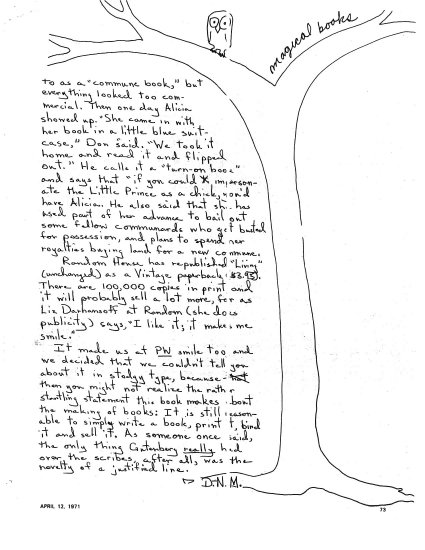 magical books
to as a "commune book," but
everything looked too com-
mercial. Then one day Alicia
showed up. "She came in with
her book in a little blue suit-
case," Don said. "We took it
home and read it and flipped
out." He calls it a "turn-on book"
and says that "if you could imperson-
ate the Little Prince as a chick, you'd
have Alicia. He also said that she has
used part of her advance to bail out
some fellow communards who got busted
for possession, and plans to spend her
royalties buying land for a new commune.
Random House has republished "Living"
(unchanged) as a Vintage paperback ($3.95).
There are 100,000 copies in print and
it will probably sell a lot more, for as
Liz Darhansoff at Random (she does
publicity) says, "I like it; it makes me
smile."
It made us at PW smile too and
we decided that we couldn't tell you
about it in stodgy type, because
then you might not realize the rather
startling statement this book makes about
the making of books: It is still reason-
able to simply write a book, print it, bind
it and sell it. As someone once said,
the only thing Gutenberg really had
over the scribes, after all, was the
novelty of a justified line.
D.N.M.
APRIL 12, 1971
73